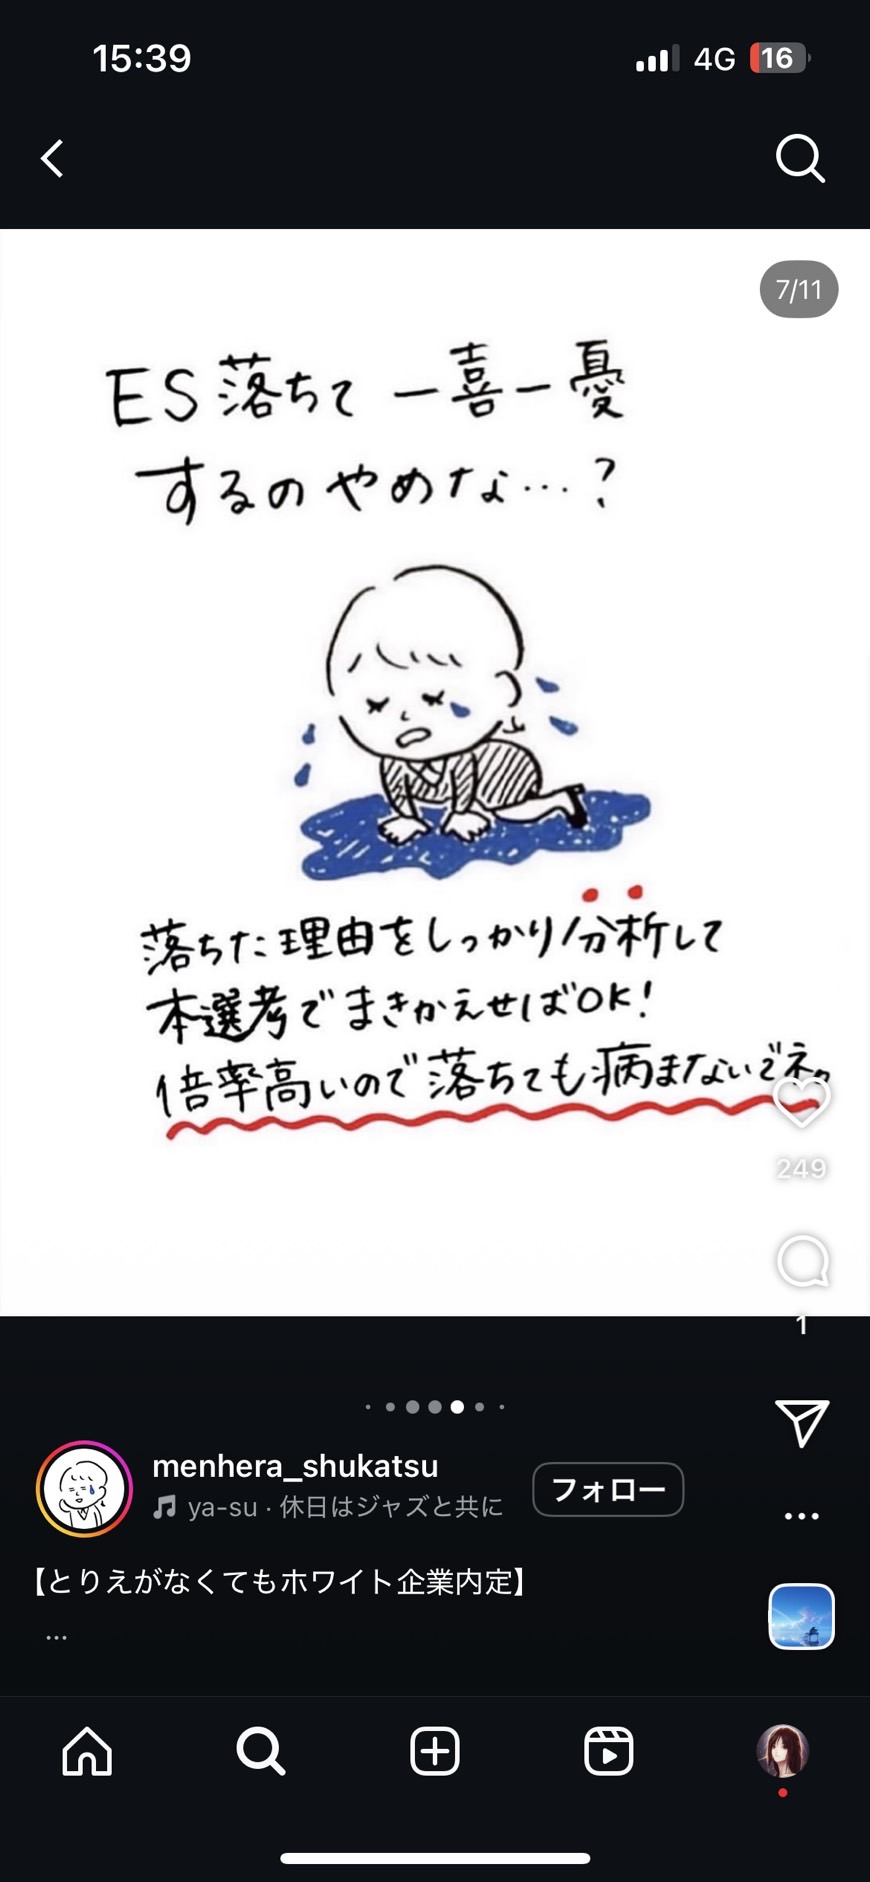 15:39
4G
16
7/11
ES落ちて一喜一憂
するのやめな…?
落ちた理由をしっかり分析して
本選考でまきかえせばOK!
倍率高いので落ちても病まないでネ。
249
1
menhera_shukatsu
ya-su · 休日はジャズと共に
フォロー
【とりえがなくてもホワイト企業内定】
...